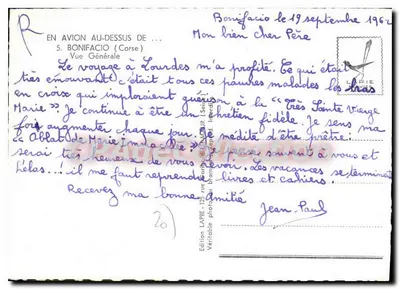 Bonifacio le 19 septembre 196
EN AVION AU-DESSUS DE ...
5. BONIFACIO (Corse)
Vue Générale
Mon bien cher Père
Le voyage à Lourdes m'a profité. Ce qui était
très émouvant c'était tous ces pauvres malades les bras
en croix qui imploraient guérison à la "Très Sainte Vierge
Marie" Je continue à être un chrétien fidèle. Je sens ma
foi augmenter chaque jour. Je médite d'être prêtre:
"Oblat de Marie Immaculée". Je pense souvent à vous et
serai très heureux de vous revoir. Les vacances se terminent
Hélas...! il me faut reprendre livres et cahiers.
Recevez ma bonne amitié
Jean-Paul
20
Edition LAPIE